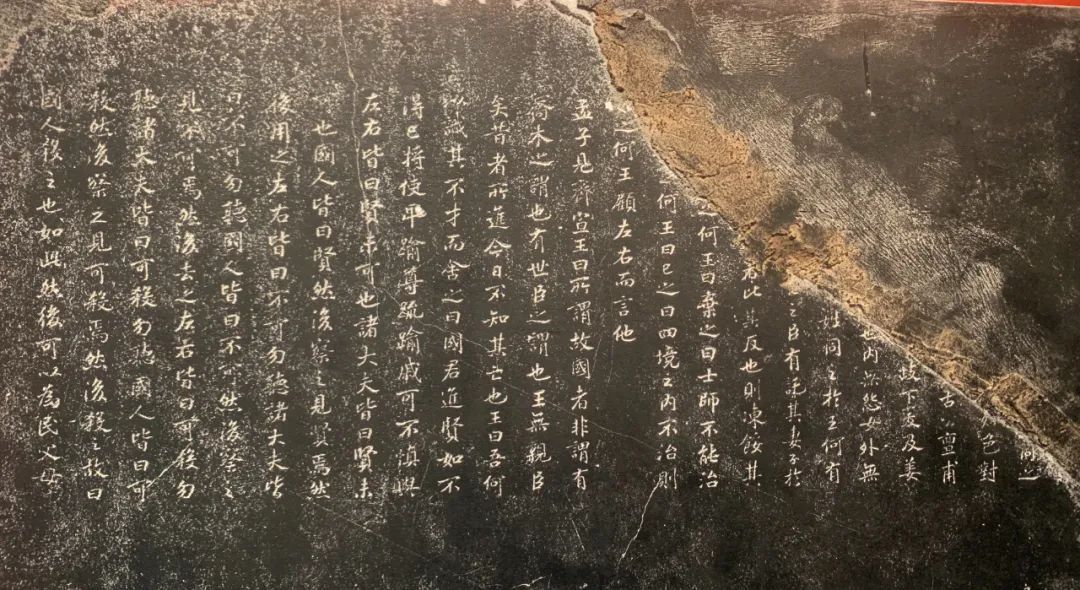 色對
古公亶甫
岐下爰及姜
也内無怨女外無
姓同之於王何有
之臣有託其妻子於
者比其反也則凍餒其
之何王曰棄之曰士師不能治
何王曰已之曰四境之内不治則
之何王顧左右而言他
孟子見齊宣王曰所謂故國者非謂有
喬木之謂也有世臣之謂也王無親臣
矣昔者所進今日不知其亡也王曰吾何
以識其不才而舍之曰國君進賢如不
得已將使卑踰尊疏踰戚可不慎與
左右皆曰賢未可也諸大夫皆曰賢未
可也國人皆曰賢然後察之見賢焉然
後用之左右皆曰不可勿聽諸大夫皆
曰不可勿聽國人皆曰不可然後察之
見不可焉然後去之左右皆曰可殺勿
聽諸大夫皆曰可殺勿聽國人皆曰可
殺然後察之見可殺焉然後殺之故曰
國人殺之也如此然後可以為民父母